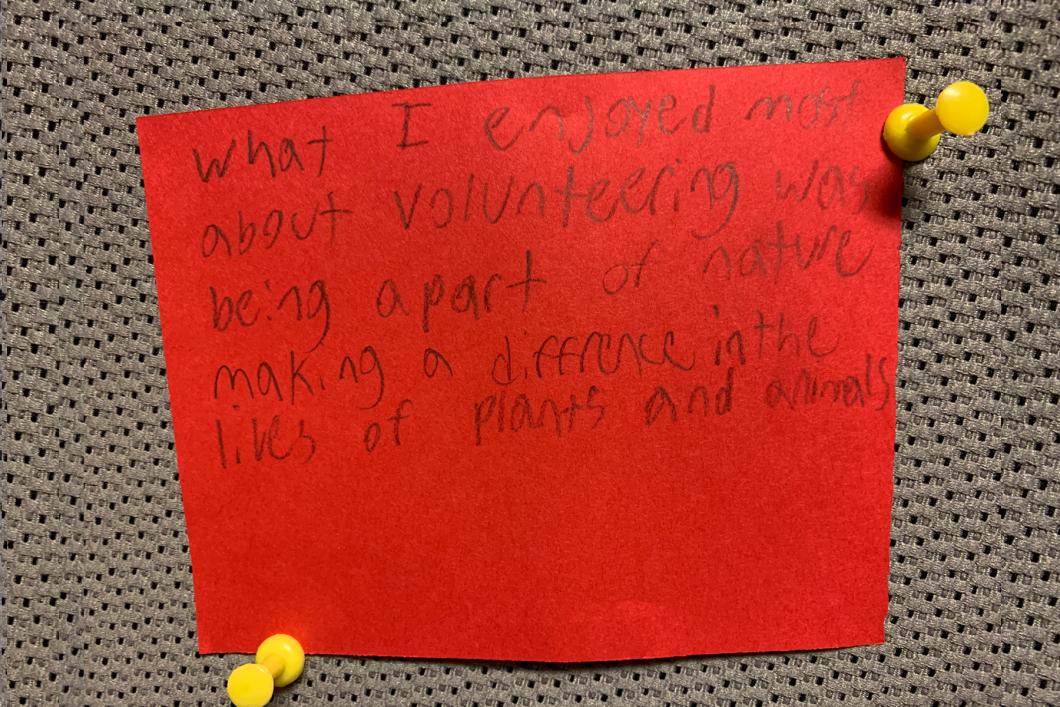 what I enjoyed most
about volunteering was
being apart of nature
making a diffrence in the
lives of plants and animals